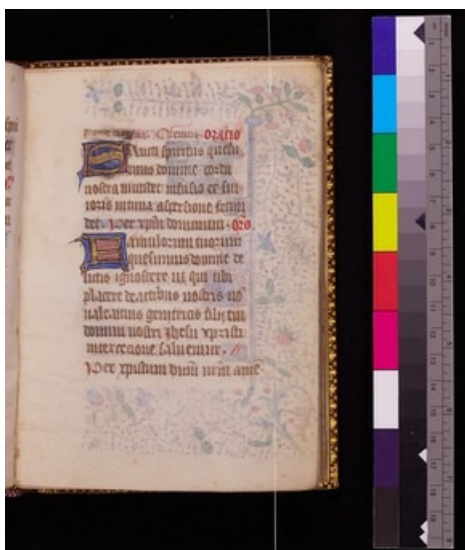 Oremus. oratio
Sancti spiritus quesu
mus domine corda
nostra mundet infusio et sui
roris intima aspersione fecun
det. Per xpm dominum. oro
Famulorum tuorum
quesumus domine de
lictis ignosce ut qui tibi
placere de actibus nostris no
ualemus genitricis filii tui
domini nostri ihesu xpisti
intercecione saluemur.
Per xpistum dnm nrm ame